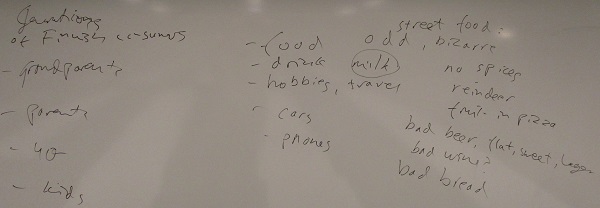 Generations
of Finnish consumers
- grandparents
- parents
- 40
- kids
- food
- drink milk
- hobbies, travel
- cars
- phones
street food:
odd, bizarre
no spices
reindeer
fruit in pizza
bad beer, flat, sweet, lager
bad wine?
bad bread